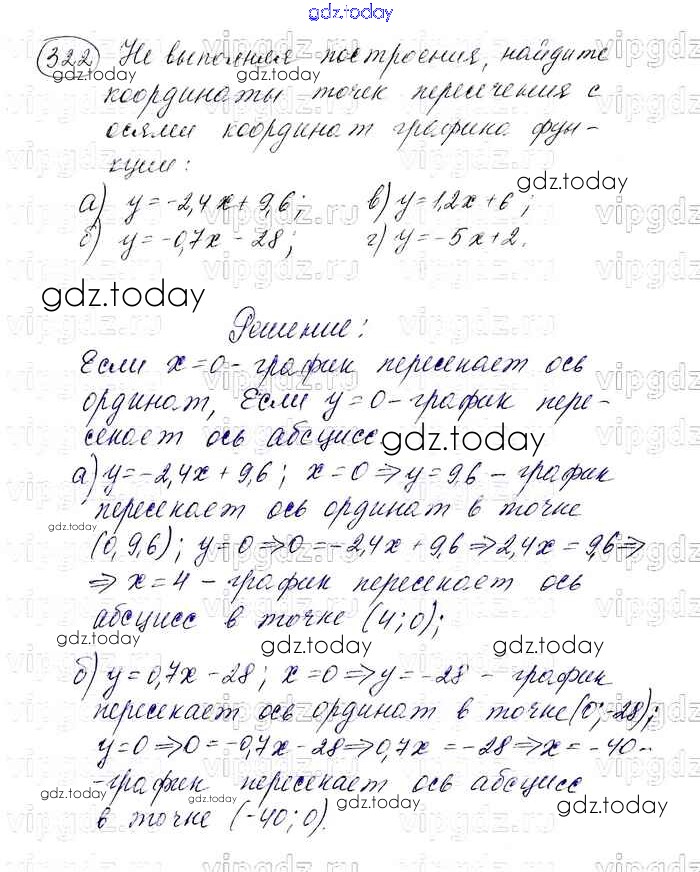 gdz.today
322 Не выполняя построения, найдите
gdz.today
координаты точек пересечения с
осями координат графика фун-
кции:
gdz.today
а) y=-2,4x+9,6; в) y=1,2x+6;
б) y=-0,7x-28; г) y=-5x+2.
gdz.today
Решение:
Если x=0-график пересекает ось
ординат, Если y=0-график пере-
секает ось абсцисс
gdz.today
а) y=-2,4x+9,6; x=0⇒y=9,6 - график
пересекает ось ординат в точке
gdz.today
(0,9,6); y=0⇒0=-2,4x+9,6⇒2,4x=9,6⇒
⇒x=4-график пересекает ось
абсцисс в точке (4;0);
gdz.today gdz.today gdz.today
б) y=0,7x-28; x=0⇒y=-28 - график
пересекает ось ординат в точке (0;-28);
y=0⇒0=-0,7x-28⇒0,7x=-28⇒x=-40-
-график пересекает ось абсцисс
gdz.today gdz.today
в точке (-40;0).
vipgdz.ru